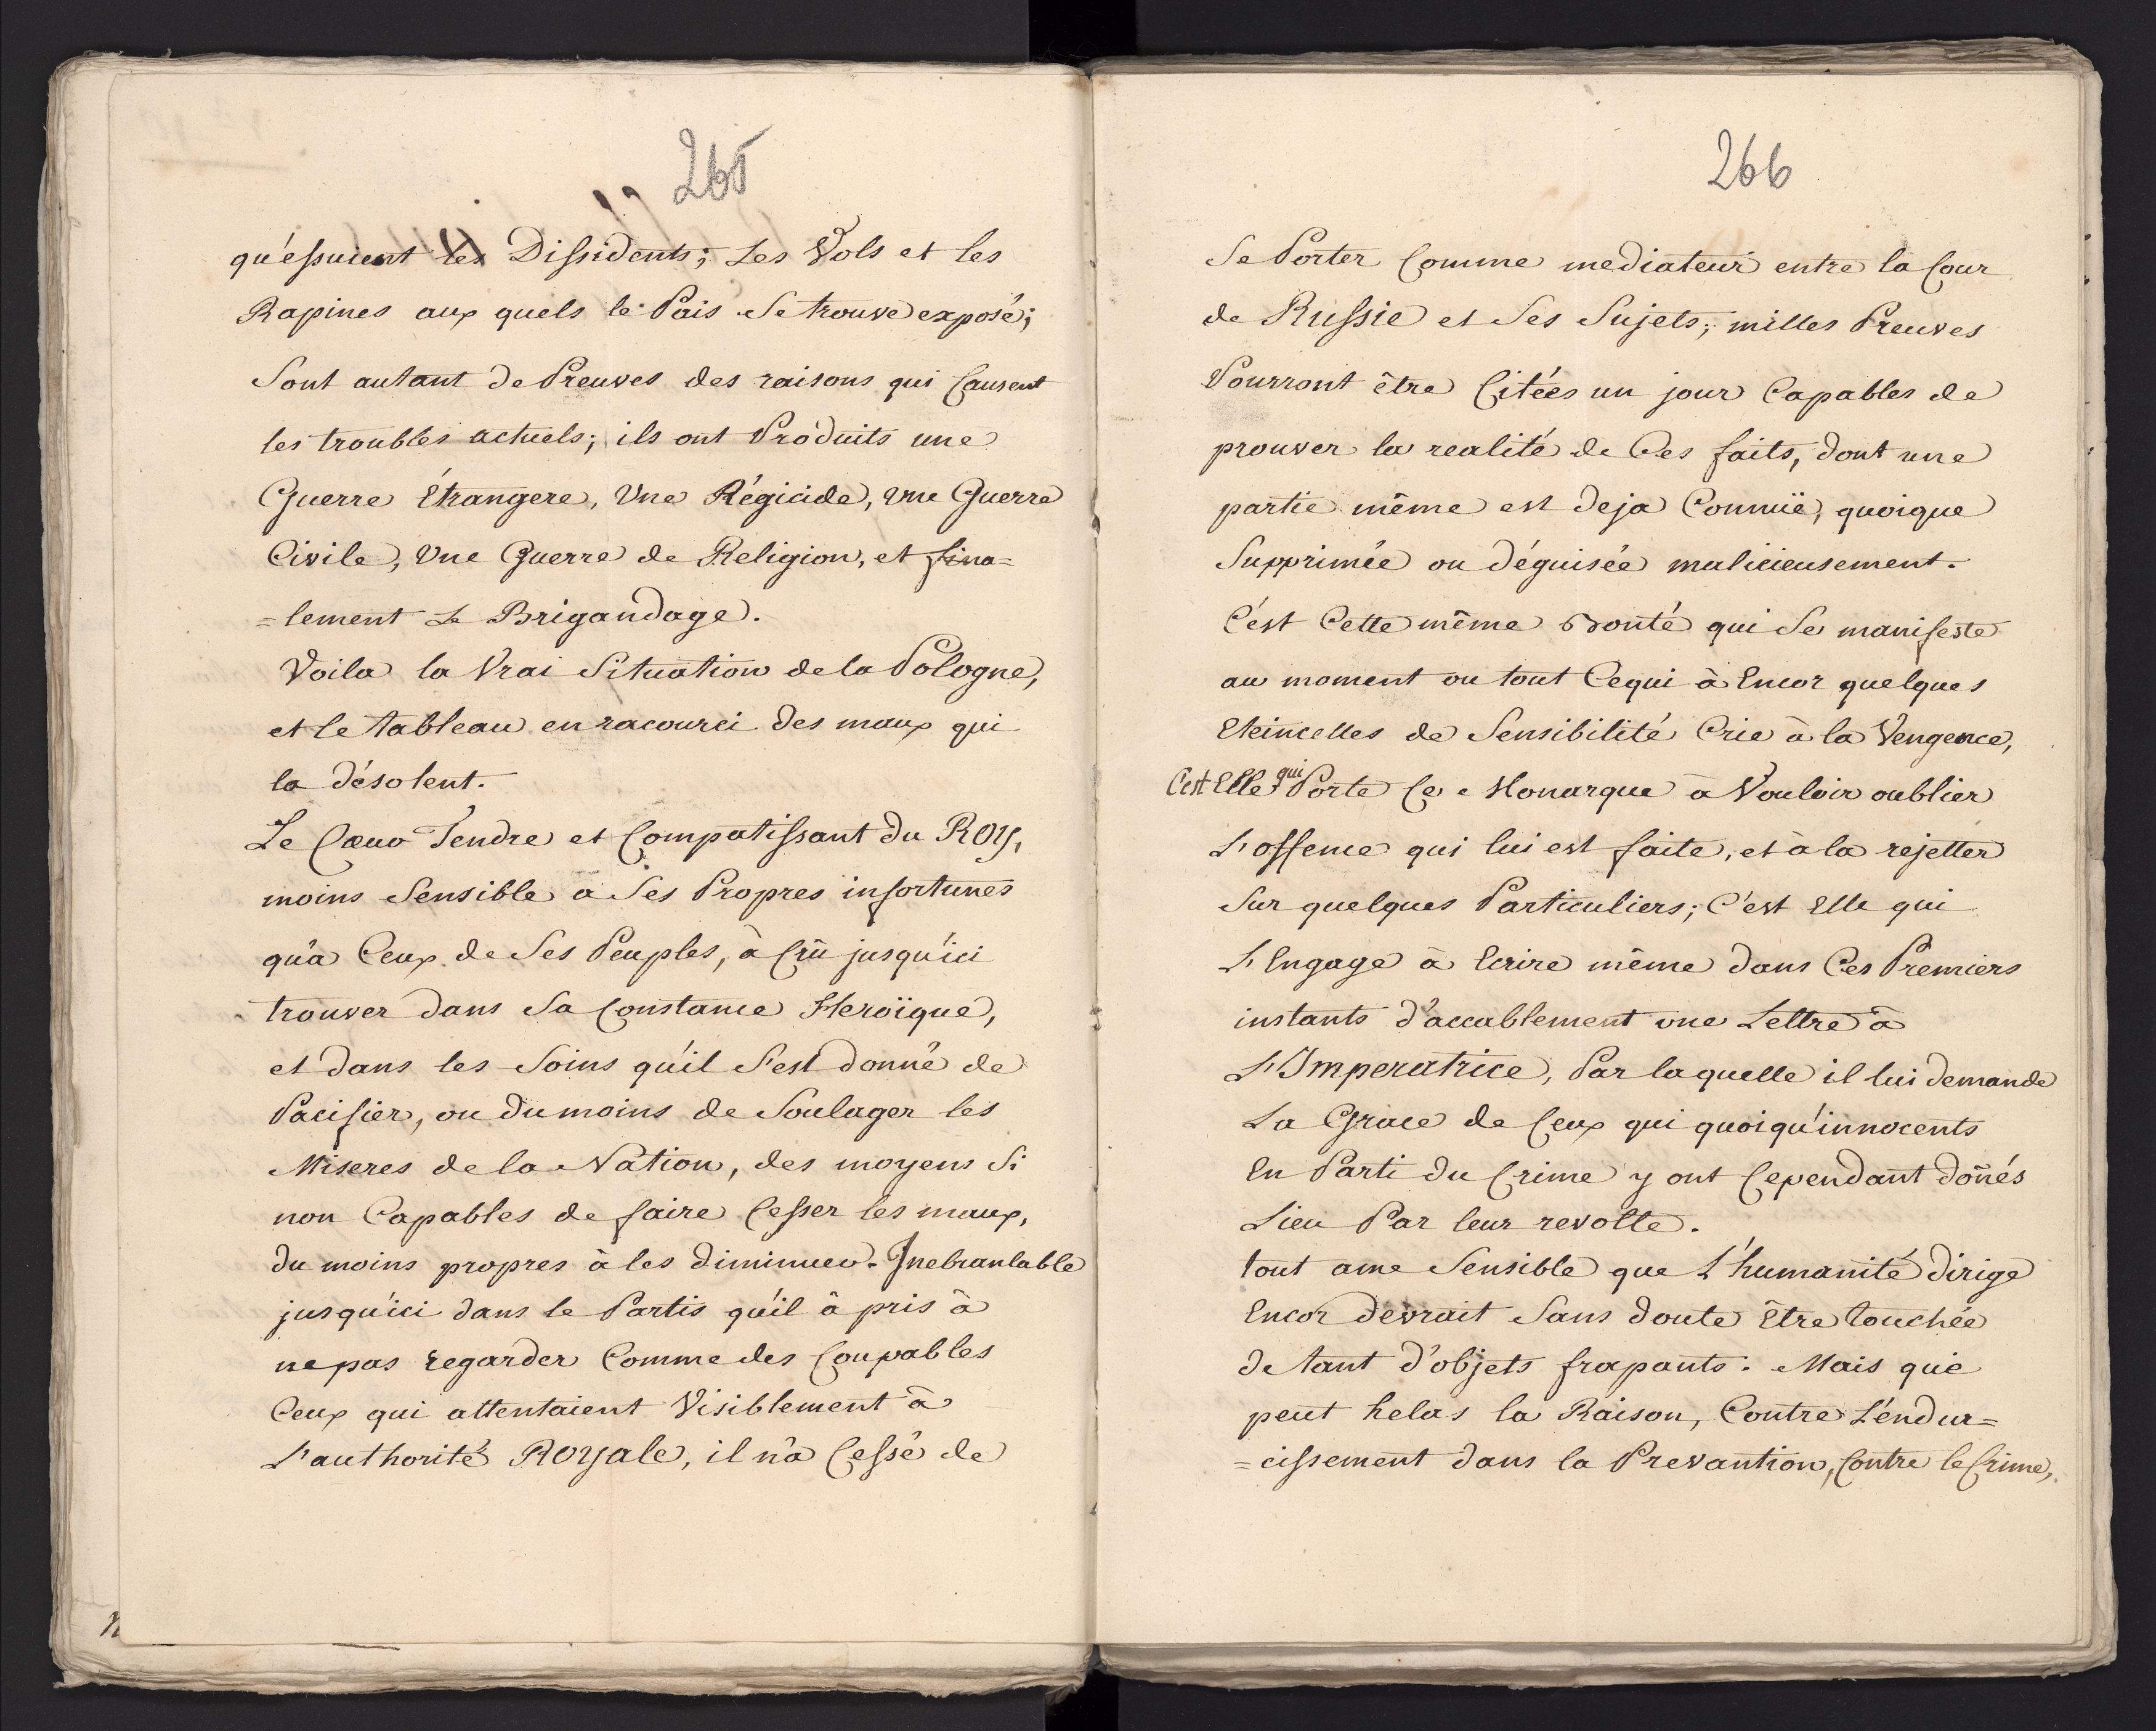 265
qu'éssuient les Dissidents; Les Vols et les
Rapines aux quels le Païs Se trouve exposé;
Sont autant de Preuves des raisons qui Causent
les troubles actuels; ils ont Produits une
Guerre Étrangere, Une Régicide, une Guerre
Civile, Une Guerre de Religion, et fina=
=lement Le Brigandage.
Voila la Vrai Situation de la Pologne,
et le tableau en racourci des maux qui
la désolent.
Le Cœur Tendre et Compatissant du ROY,
moins Sensible a Ses Propres infortunes
qu'a Ceux de Ses Peuples, à Crû jusqu'ici
trouver dans Sa Constance Heroïque,
et dans les Soins qu'il S'est donné de
Pacifier, ou du moins de Soulager les
Miseres de la Nation, des moyens Si
non Capables de faire Cesser les maux,
du moins propres à les diminuer. Inebranlable
jusqu'ici dans le Partis qu'il à pris à
ne pas regarder Comme des Coupables
Ceux qui attentaient Visiblement à
L'authorité ROYale, il n'a Cessé de
266
Se Porter Comme mediateur entre la Cour
de Russie et Ses Sujets; milles Preuves
Pourront être Citées un jour Capables de
prouver la realité de Ces faits, dont une
partie même est deja Connuë, quoique
Supprimée ou déguisée malicieusement.
C'est Cette même Bonté qui Se manifeste
au moment ou tout Ce qui à Encor quelques
Eteincelles de Sensibilité Crie à la Vengence,
C'est Elle qui Porte Ce Monarque à Vouloir oublier
L'offence qui lui est faite, et à la rejetter
Sur quelques Particuliers; C'est Elle qui
L'Engage à Ecrire même dans Ces Premiers
instants d'accablement une Lettre à
L'Imperatrice, Par laquelle il lui demande
La Grace de Ceux qui quoiqu'innocents
En Parti du Crime y ont Cependant doñés
Lieu Par leur revolte.
tout ame Sensible que L'humanité dirige
Encor devrait Sans doute Être touchée
de tant d'objets frapants. Mais que
peut helas la Raison, Contre L'éndur=
=cissement dans la Prevantion, Contre le Crime,